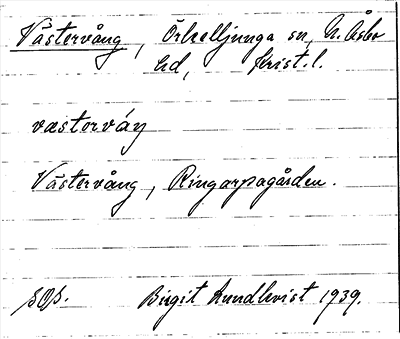 Västervång, Örkelljunga sn, N. Åsbo
hd, Krist. l.
væstorváŋ
Västervång, Ringarpagården.
Birgit Lundkvist 1939.